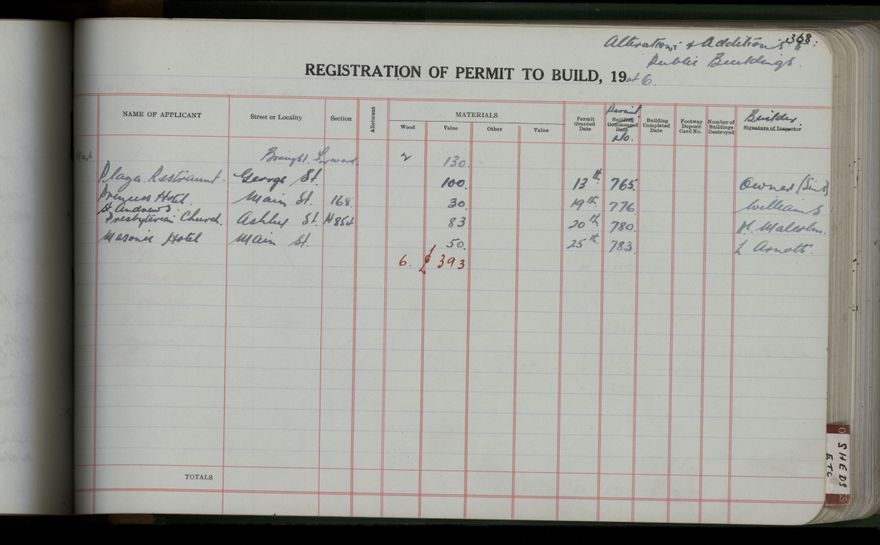 368
Alterations & Additions
Public Buildings.
REGISTRATION OF PERMIT TO BUILD, 19
6.
NAME OF APPLICANT Street or Locality Section Allotment MATERIALS Wood Value Other Value Permit Granted Date Building Commenced Date Permit No. Building Completed Date Footway Deposit Card No. Number of Buildings Destroyed Signature of Inspector Builder
Brought Forward 2 130.
Plaza Restraunt. George St. 100. 13th 765. Owner
Princess Hotel. Main St. 168. 30. 19th 776. Williams
St Andrews
Presbyterian Church. Ashley St. 83 20th 780. Malcolm.
Masonic Hotel Main St. 50. 25th 783. L Arnott.
6. £ 393
TOTALS
SHEDS
ETC